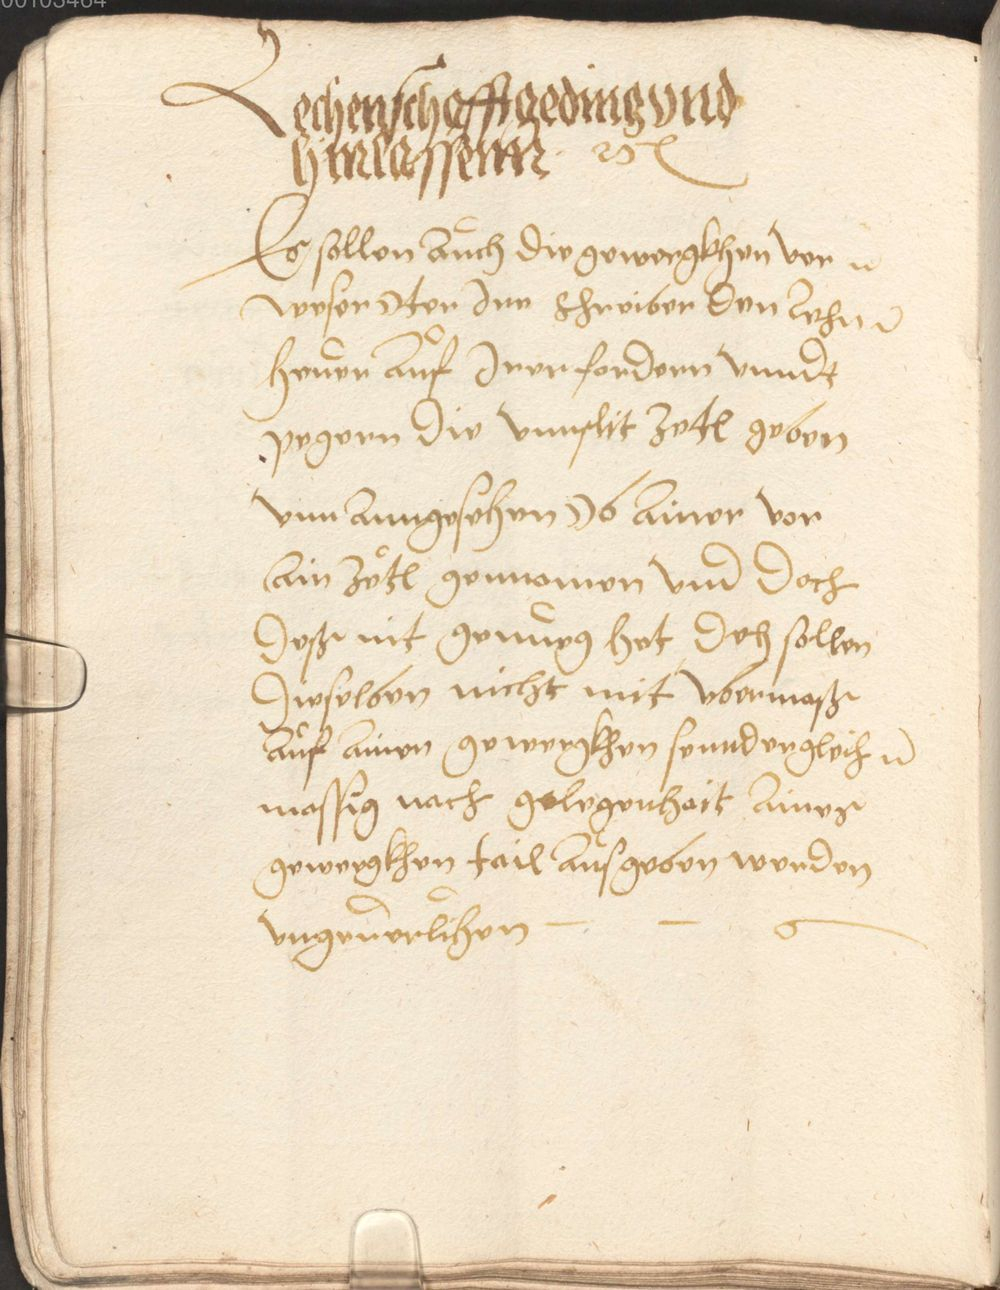 00103464
Rechenschafft geding vnd
hinlassenn ꝛc
Es sollen auch die gewergkhen ver
weser oder Ire Schreiber den Lehen
heuer auf Irer fordern vnnd
pegern die vnnslit zetl geben
vnn anngesehen ob ainer vor
ain zetl genomen vnd doch
deß nit genueg het doch sollen
dieselben nicht mit vbermaß
auf ainen gewergkhen sonnder gleich
massig nach gelegenhait aines
gewergkhen tail ausgeben werden
vngeuerlichen